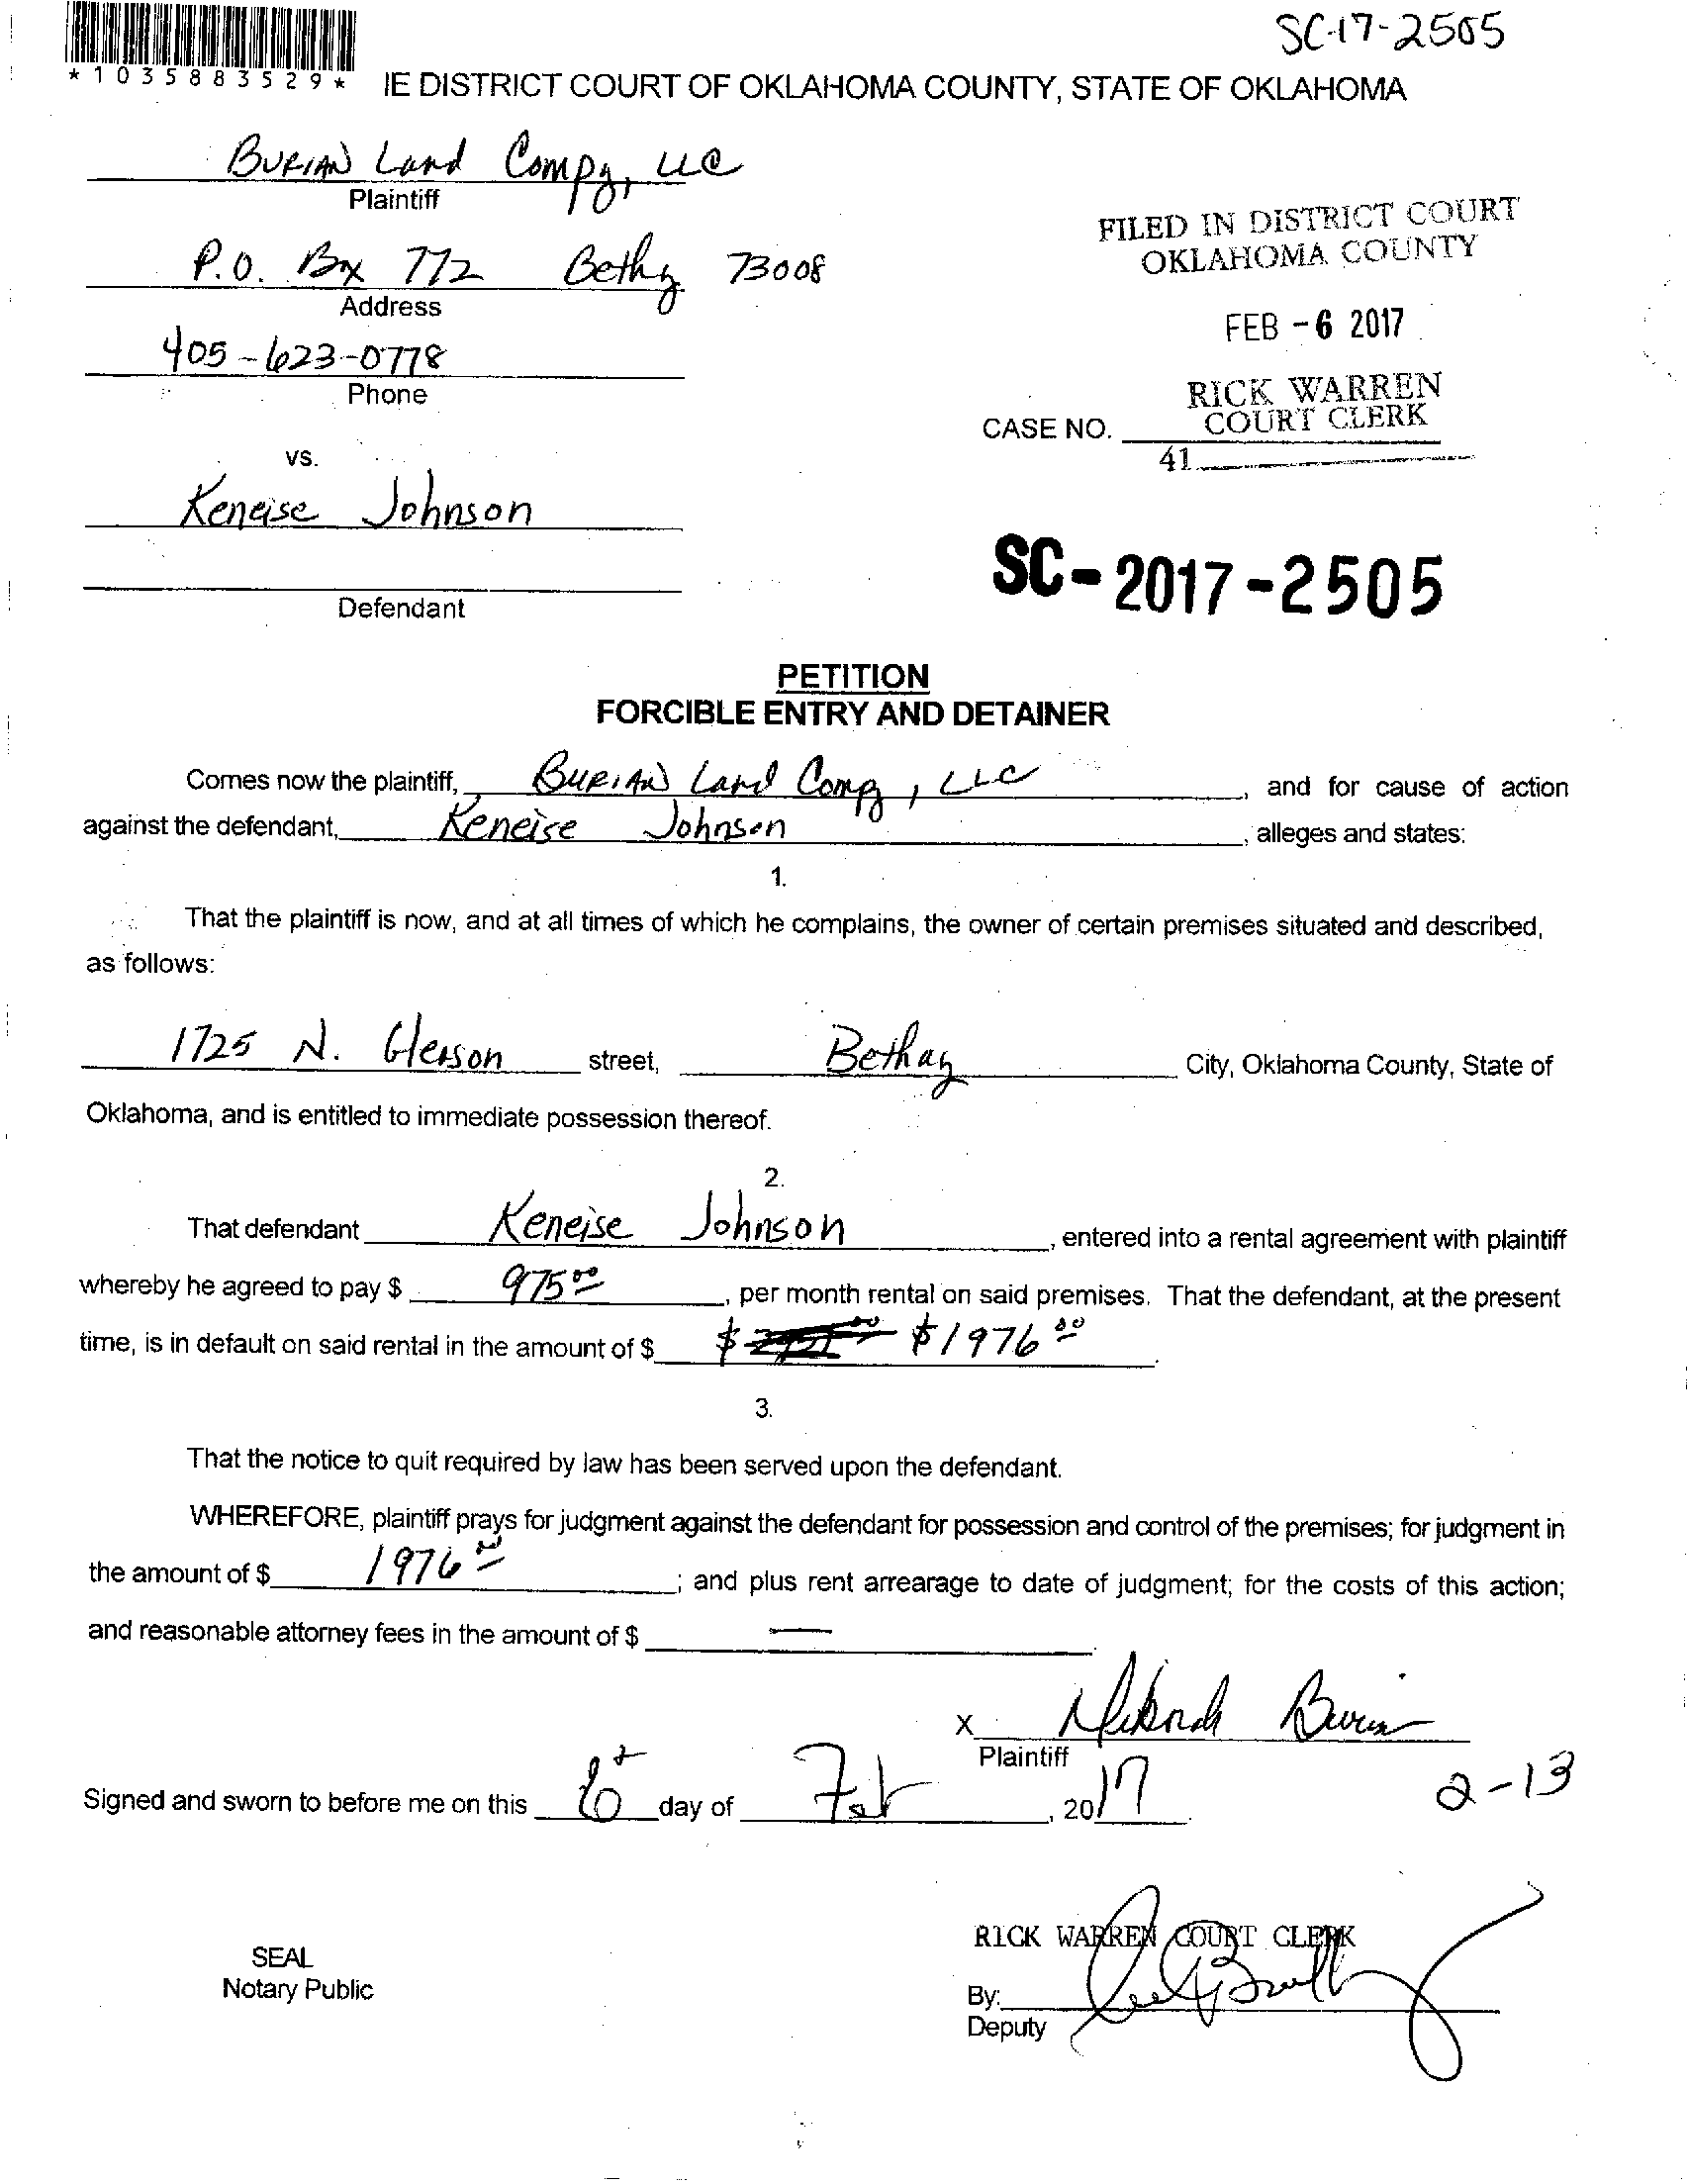 SC-17-2505
*1035883529*
IE DISTRICT COURT OF OKLAHOMA COUNTY, STATE OF OKLAHOMA
BURIAN Land Compy, LLC
Plaintiff
P.O. Box 772 Bethy 73008
Address
405-623-0778
Phone
FILED IN DISTRICT COURT
OKLAHOMA COUNTY
FEB -6 2017
RICK WARREN
COURT CLERK
CASE NO.
41
vs.
Keneise Johnson
Defendant
SC-2017-2505
PETITION
FORCIBLE ENTRY AND DETAINER
Comes now the plaintiff, BURIAN Land Compy, LLC, and for cause of action
against the defendant, Keneise Johnson, alleges and states:
1.
That the plaintiff is now, and at all times of which he complains, the owner of certain premises situated and described,
as follows:
1725 N. Gleason street, Bethany City, Oklahoma County, State of
Oklahoma, and is entitled to immediate possession thereof.
2.
That defendant Keneise Johnson, entered into a rental agreement with plaintiff
whereby he agreed to pay $ 975.00, per month rental on said premises. That the defendant, at the present
time, is in default on said rental in the amount of $ $ $1976.00.
3.
That the notice to quit required by law has been served upon the defendant.
WHEREFORE, plaintiff prays for judgment against the defendant for possession and control of the premises; for judgment in
the amount of $ 1976; and plus rent arrearage to date of judgment; for the costs of this action;
and reasonable attorney fees in the amount of $ —
x
Plaintiff
Signed and sworn to before me on this 6 day of Feb, 2017
2-13
RICK WARREN COURT CLERK
SEAL
Notary Public
By:
Deputy